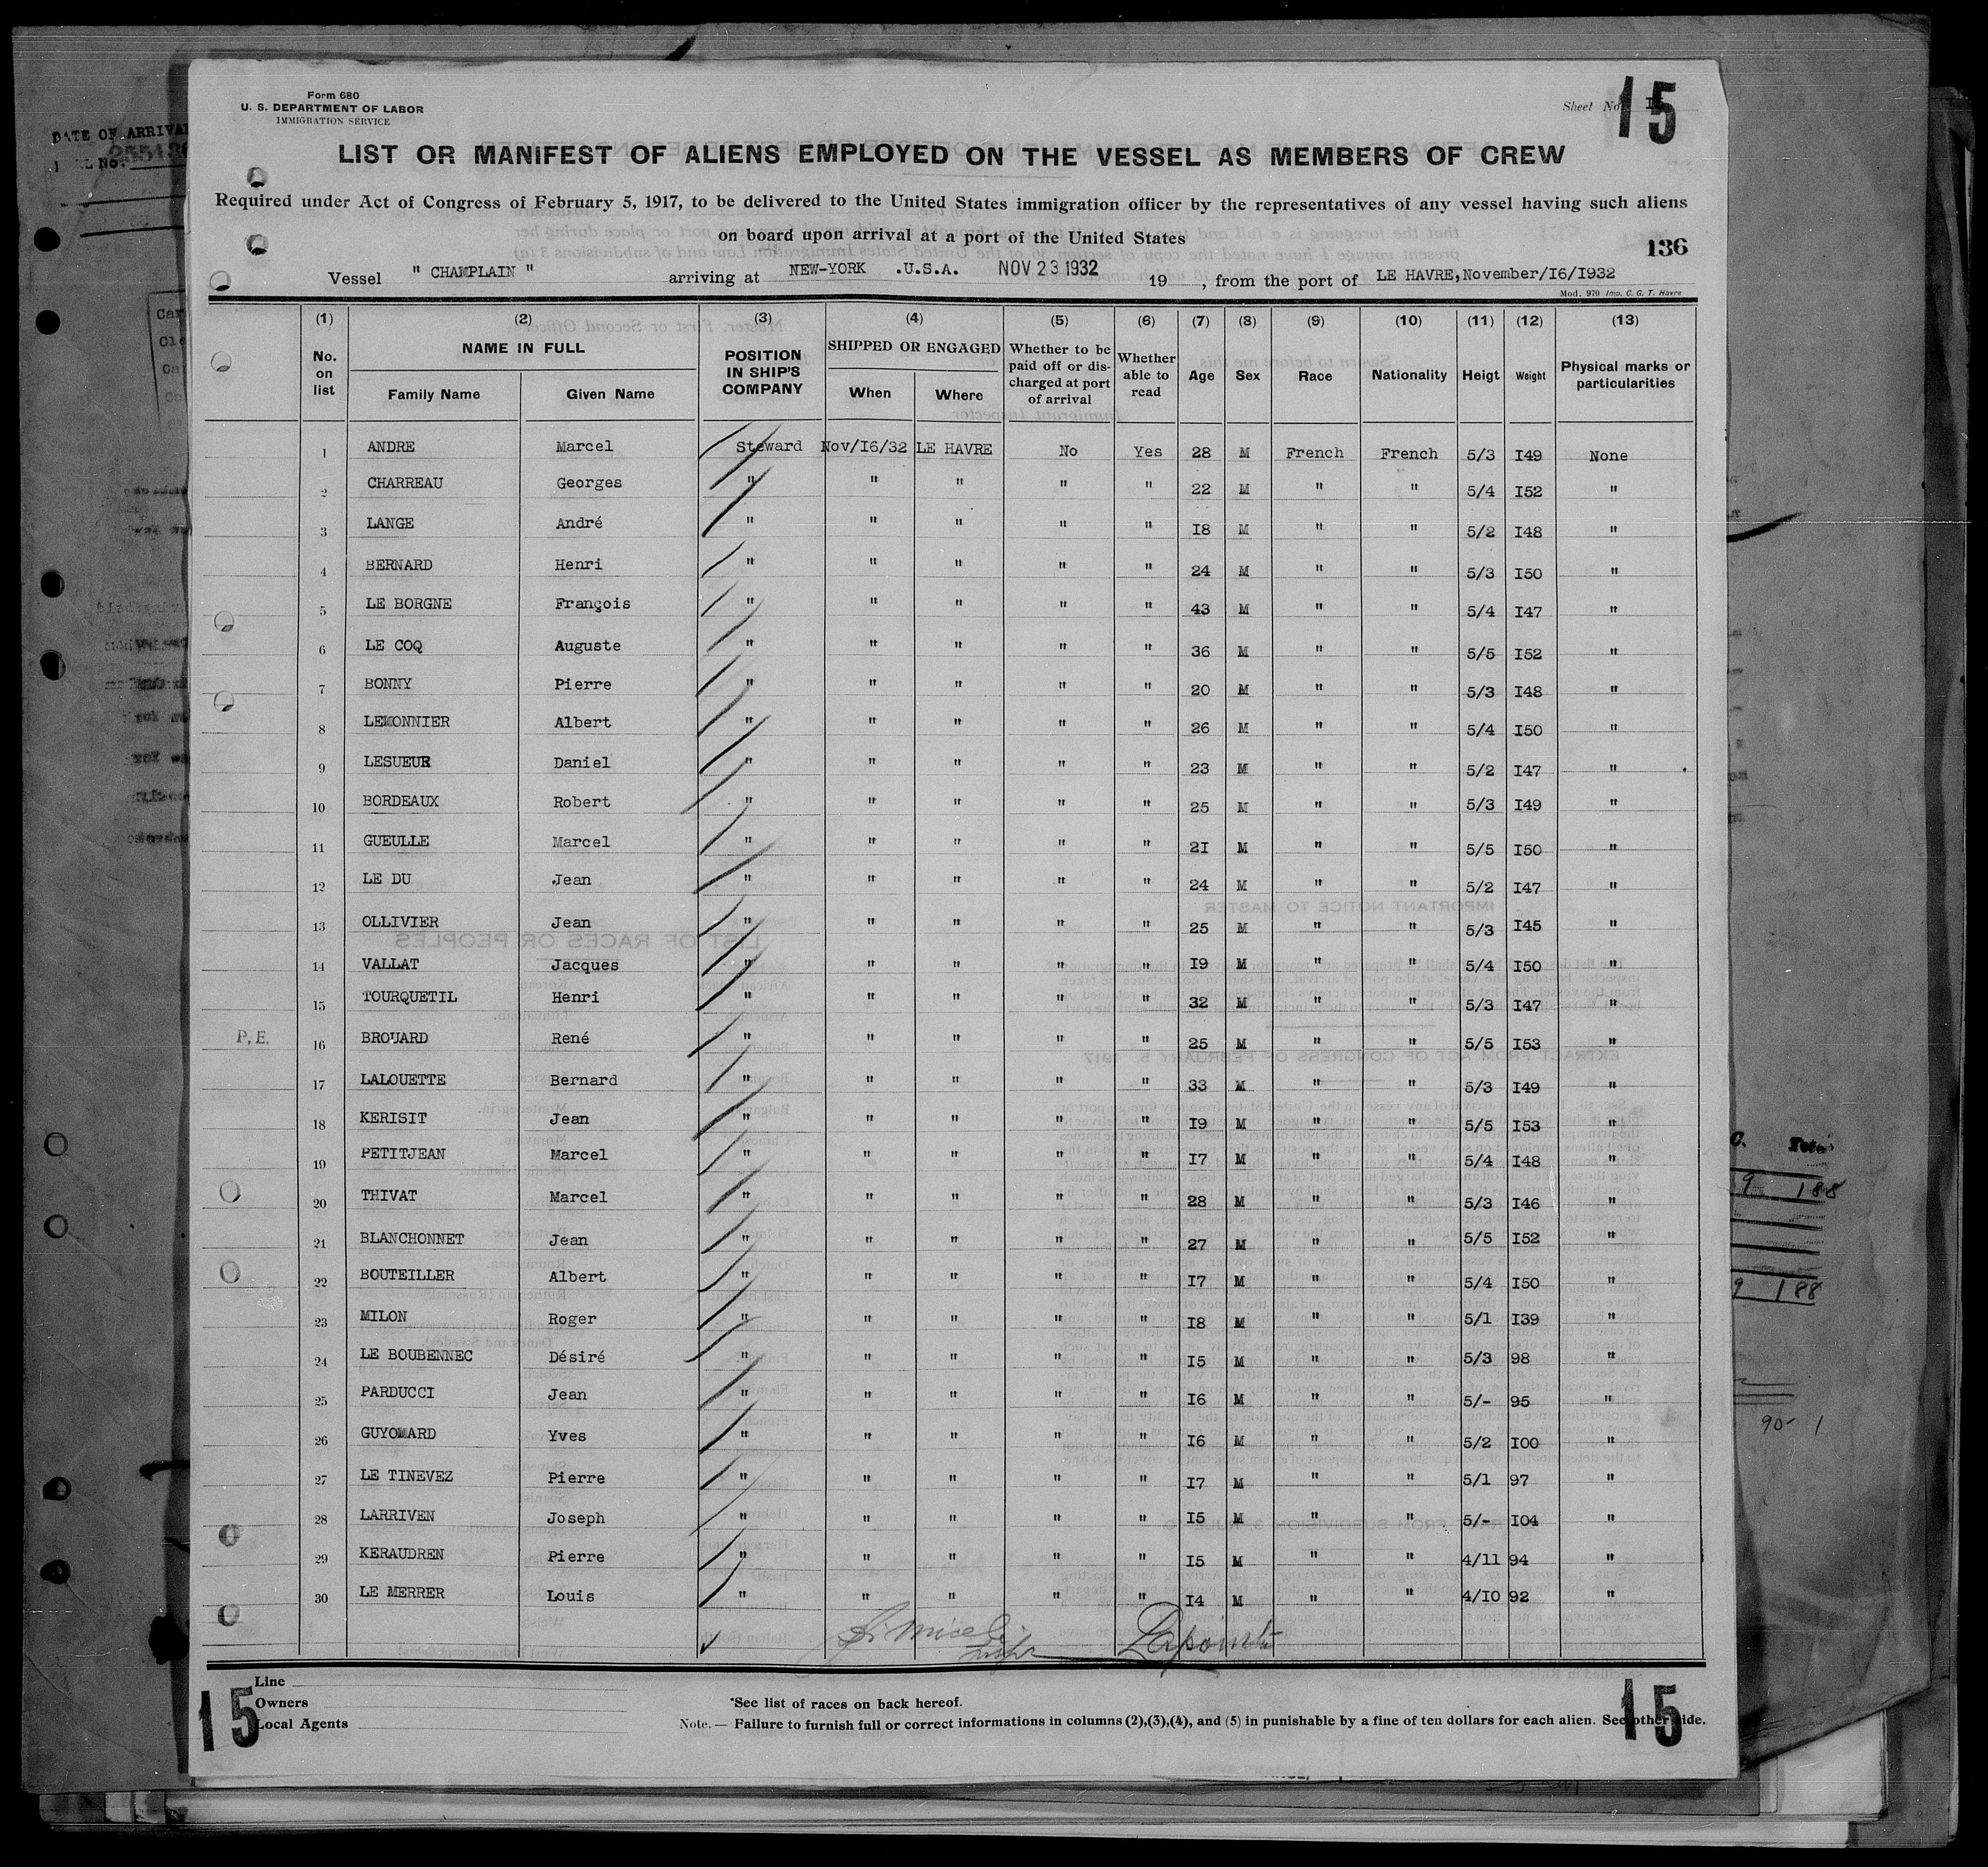 Form 680
U. S. DEPARTMENT OF LABOR
IMMIGRATION SERVICE
Sheet No. 15
15
LIST OR MANIFEST OF ALIENS EMPLOYED ON THE VESSEL AS MEMBERS OF CREW
Required under Act of Congress of February 5, 1917, to be delivered to the United States immigration officer by the representatives of any vessel having such aliens
on board upon arrival at a port of the United States
136
Vessel " CHAMPLAIN " arriving at NEW-YORK .U.S.A. NOV 23 1932 19 , from the port of LE HAVRE, November/I6/I932
Mod. 970 Imp. C. G. T. Havre
(1) (2) (3) (4) (5) (6) (7) (8) (9) (10) (11) (12) (13)
No. on list NAME IN FULL Family Name Given Name POSITION IN SHIP'S COMPANY SHIPPED OR ENGAGED When Where Whether to be paid off or discharged at port of arrival Whether able to read Age Sex Race Nationality Heigt Weight Physical marks or particularities
1 ANDRE Marcel Steward Nov/I6/32 LE HAVRE No Yes 28 M French French 5/3 I49 None
2 CHARREAU Georges " " " " " 22 M " " 5/4 I52 "
3 LANGE André " " " " " I8 M " " 5/2 I48 "
4 BERNARD Henri " " " " " 24 M " " 5/3 I50 "
5 LE BORGNE François " " " " " 43 M " " 5/4 I47 "
6 LE COQ Auguste " " " " " 36 M " " 5/5 I52 "
7 BONNY Pierre " " " " " 20 M " " 5/3 I48 "
8 LEMONNIER Albert " " " " " 26 M " " 5/4 I50 "
9 LESUEUR Daniel " " " " " 23 M " " 5/2 I47 "
10 BORDEAUX Robert " " " " " 25 M " " 5/3 I49 "
11 GUEULLE Marcel " " " " " 2I M " " 5/5 I50 "
12 LE DU Jean " " " " " 24 M " " 5/2 I47 "
13 OLLIVIER Jean " " " " " 25 M " " 5/3 I45 "
14 VALLAT Jacques " " " " " I9 M " " 5/4 I50 "
15 TOURQUETIL Henri " " " " " 32 M " " 5/3 I47 "
P.E. 16 BROUARD René " " " " " 25 M " " 5/5 I53 "
17 LALOUETTE Bernard " " " " " 33 M " " 5/3 I49 "
18 KERISIT Jean " " " " " I9 M " " 5/5 I53 "
19 PETITJEAN Marcel " " " " " I7 M " " 5/4 I48 "
20 THIVAT Marcel " " " " " 28 M " " 5/3 I46 "
21 BLANCHONNET Jean " " " " " 27 M " " 5/5 I52 "
22 BOUTEILLER Albert " " " " " I7 M " " 5/4 I50 "
23 MILON Roger " " " " " I8 M " " 5/1 I39 "
24 LE BOUBENNEC Désiré " " " " " I5 M " " 5/3 98 "
25 PARDUCCI Jean " " " " " I6 M " " 5/- 95 "
26 GUYOMARD Yves " " " " " I6 M " " 5/2 I00 "
27 LE TINEVEZ Pierre " " " " " I7 M " " 5/1 97 "
28 LARRIVEN Joseph " " " " " I5 M " " 5/- I04 "
29 KERAUDREN Pierre " " " " " I5 M " " 4/11 94 "
30 LE MERRER Louis " " " " " I4 M " " 4/I0 92 "
Line
Owners
Local Agents
*See list of races on back hereof.
Note. — Failure to furnish full or correct informations in columns (2),(3),(4), and (5) in punishable by a fine of ten dollars for each alien. See other side.
15
15
DATE OF ARRIVAL
9 188
9 188
90- 1